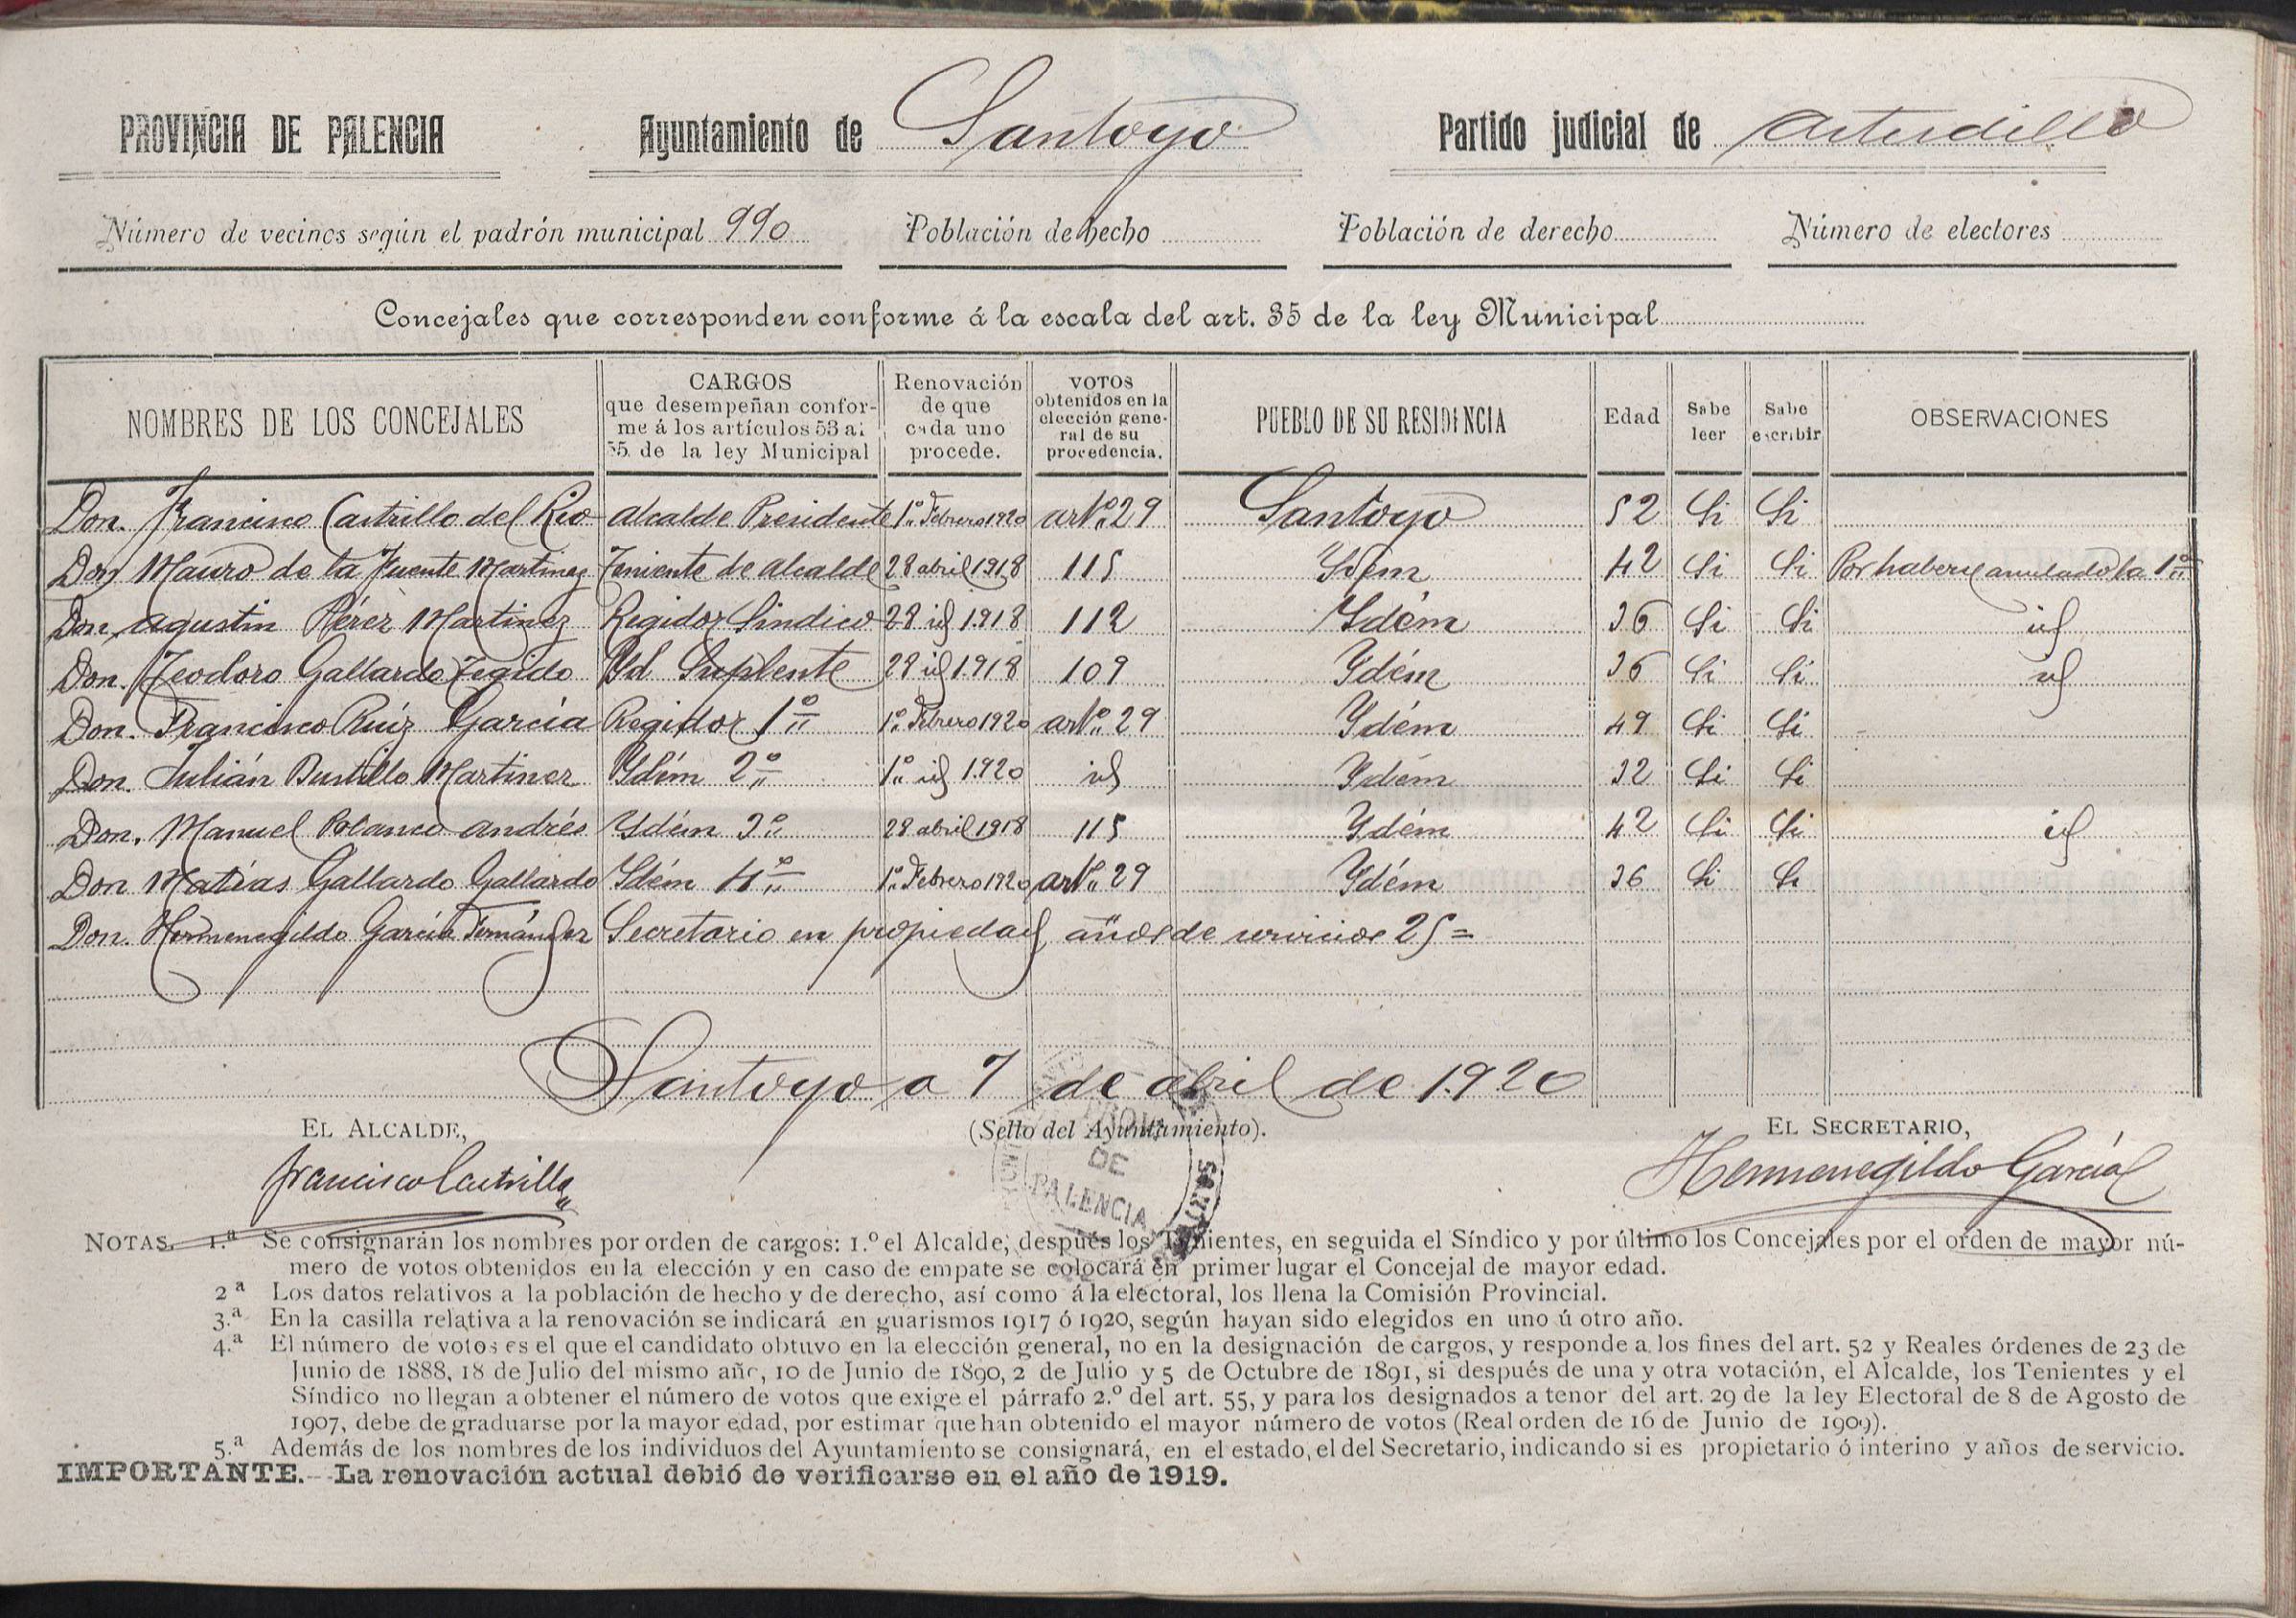 PROVINCIA DE PALENCIA Ayuntamiento de Santoyo Partido judicial de Astudillo
Número de vecinos según el padrón municipal 990 Población de hecho Población de derecho Número de electores
Concejales que corresponden conforme á la escala del art. 35 de la ley Municipal
NOMBRES DE LOS CONCEJALES
CARGOS
que desempeñan confor-
me á los artículos 53 al
55 de la ley Municipal
Renovación
de que
cada uno
procede.
VOTOS
obtenidos en la
elección gene-
ral de su
procedencia.
PUEBLO DE SU RESIDENCIA
Edad
Sabe
leer
Sabe
escribir
OBSERVACIONES
Don. Francisco Castrillo del Rio alcalde Presidente 1º Febrero 1920 artº 29 Santoyo 52 Si Si
Don Mauro de la Fuente Martinez Teniente de alcalde 28 abril 1918 115 Ydem 42 Si Si Por haberse anulado la 1ª
Don Agustin Pérez Martinez Regidor Sindico 28 id 1918 112 Ydém 36 Si Si id
Don. Teodoro Gallardo Tegido Yd Suplente 28 id 1918 109 Ydém 36 Si Si id
Don. Francisco Ruíz García Regidor 1º 1º Febrero 1920 artº 29 Ydém 49 Si Si
Don. Julián Bustillo Martinez Ydém 2º 1º id 1920 id Ydém 32 Si Si
Don. Manuel Polanco Andrés Ydém 3º 28 abril 1918 115 Ydém 42 Si Si id
Don Matías Gallardo Gallardo Ydém 4º 1º Febrero 1920 artº 29 Ydém 36 Si Si
Don. Hermenegildo García Fernández Secretario en propiedad, años de servicios 25=
Santoyo a 7 de abril de 1920
EL ALCALDE, (Sello del Ayuntamiento). EL SECRETARIO,
Francisco Castrillo Hermenegildo García
DE
PALENCIA
NOTAS. 1.ª Se consignarán los nombres por orden de cargos: 1.º el Alcalde, después los Tenientes, en seguida el Síndico y por último los Concejales por el orden de mayor nú-
mero de votos obtenidos en la elección y en caso de empate se colocará en primer lugar el Concejal de mayor edad.
2ª Los datos relativos a la población de hecho y de derecho, así como á la electoral, los llena la Comisión Provincial.
3.ª En la casilla relativa a la renovación se indicará en guarismos 1917 ó 1920, según hayan sido elegidos en uno ú otro año.
4.ª El número de votos es el que el candidato obtuvo en la elección general, no en la designación de cargos, y responde a los fines del art. 52 y Reales órdenes de 23 de
Junio de 1888, 18 de Julio del mismo año, 10 de Junio de 1890, 2 de Julio y 5 de Octubre de 1891, si después de una y otra votación, el Alcalde, los Tenientes y el
Síndico no llegan a obtener el número de votos que exige el párrafo 2.º del art. 55, y para los designados a tenor del art. 29 de la ley Electoral de 8 de Agosto de
1907, debe de graduarse por la mayor edad, por estimar que han obtenido el mayor número de votos (Real orden de 16 de Junio de 1909).
5.ª Además de los nombres de los individuos del Ayuntamiento se consignará, en el estado, el del Secretario, indicando si es propietario ó interino y años de servicio.
IMPORTANTE.--La renovación actual debió de verificarse en el año de 1919.